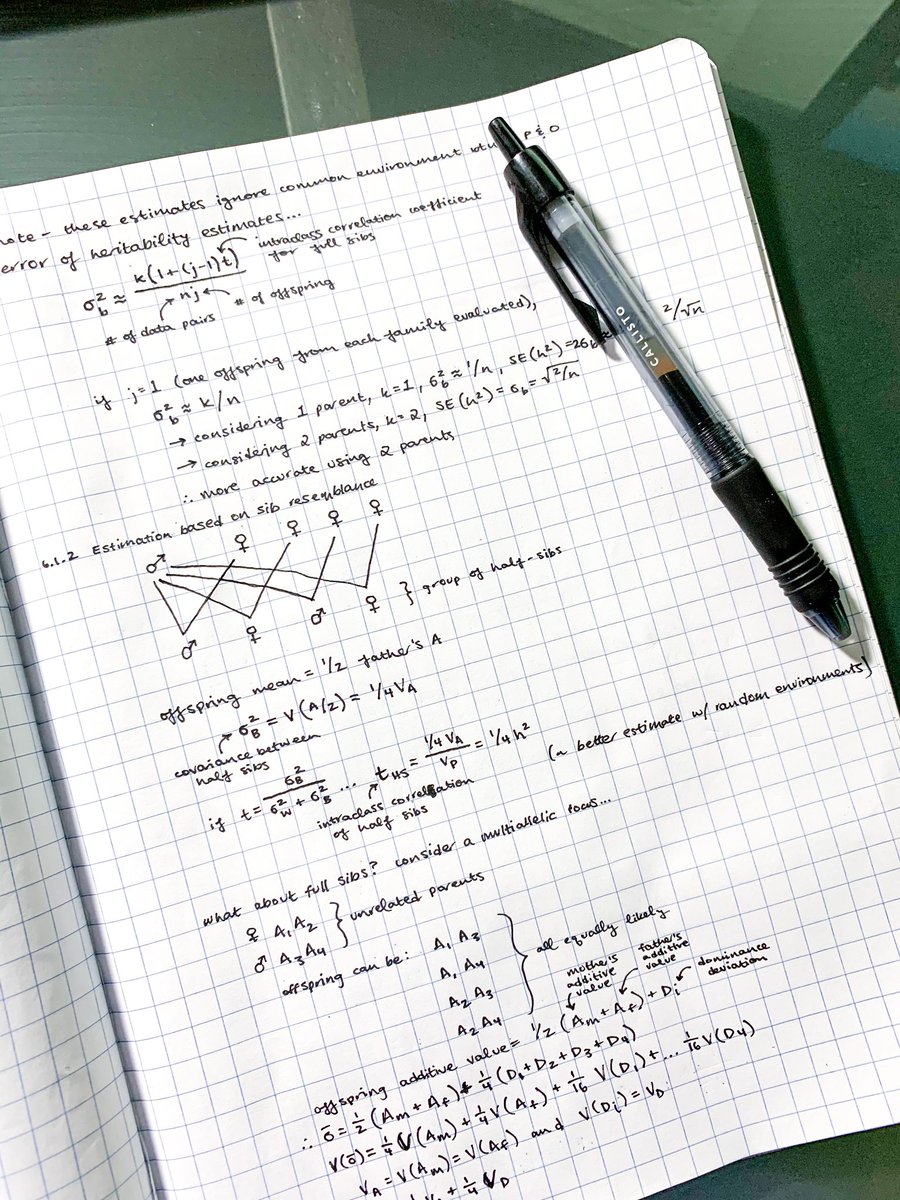 note - these estimates ignore common environment P & O
error of heritability estimates...
σ²_b ≈ k(1+(j-1)t) / nj
intraclass correlation coefficient for full sibs
# of data pairs
# of offspring
if j=1 (one offspring from each family evaluated),
σ²_b ≈ k/n
→ considering 1 parent, k=1, σ²_b ≈ 1/n, SE(h²)=2σ_b ≈ 2/√n
→ considering 2 parents, k=2, SE(h²) = σ_b = √2/n
∴ more accurate using 2 parents
6.1.2 Estimation based on sib resemblance
♂ ♀ ♀ ♀ ♀
♂ ♀ ♂ ♀ } group of half-sibs
offspring mean = 1/2 father's A
σ²_B = V(A/2) = 1/4 V_A
covariance between half sibs
if t = σ²_B / σ²_W + σ²_B ... t_HS = 1/4 V_A / V_P = 1/4 h² (~ better estimate w/ random environments)
intraclass correlation of half sibs
what about full sibs? consider a multiallelic locus...
♀ A₁A₂
♂ A₃A₄ } unrelated parents
offspring can be: A₁A₃
A₁A₄
A₂A₃
A₂A₄
all equally likely
mother's additive value
father's additive value
dominance deviation
offspring additive value = 1/2 (Am + Af) + Di
∴ ō = 1/2 (Am + Af) + 1/4 (D₁+D₂+D₃+D₄)
V(ō) = 1/4 V(Am) + 1/4 V(Af) + 1/16 V(D₁) + ... 1/16 V(D₄)
V_A = V(Am) = V(Af) and V(Di) = V_D
+ 1/4 V_D
CALLISTO